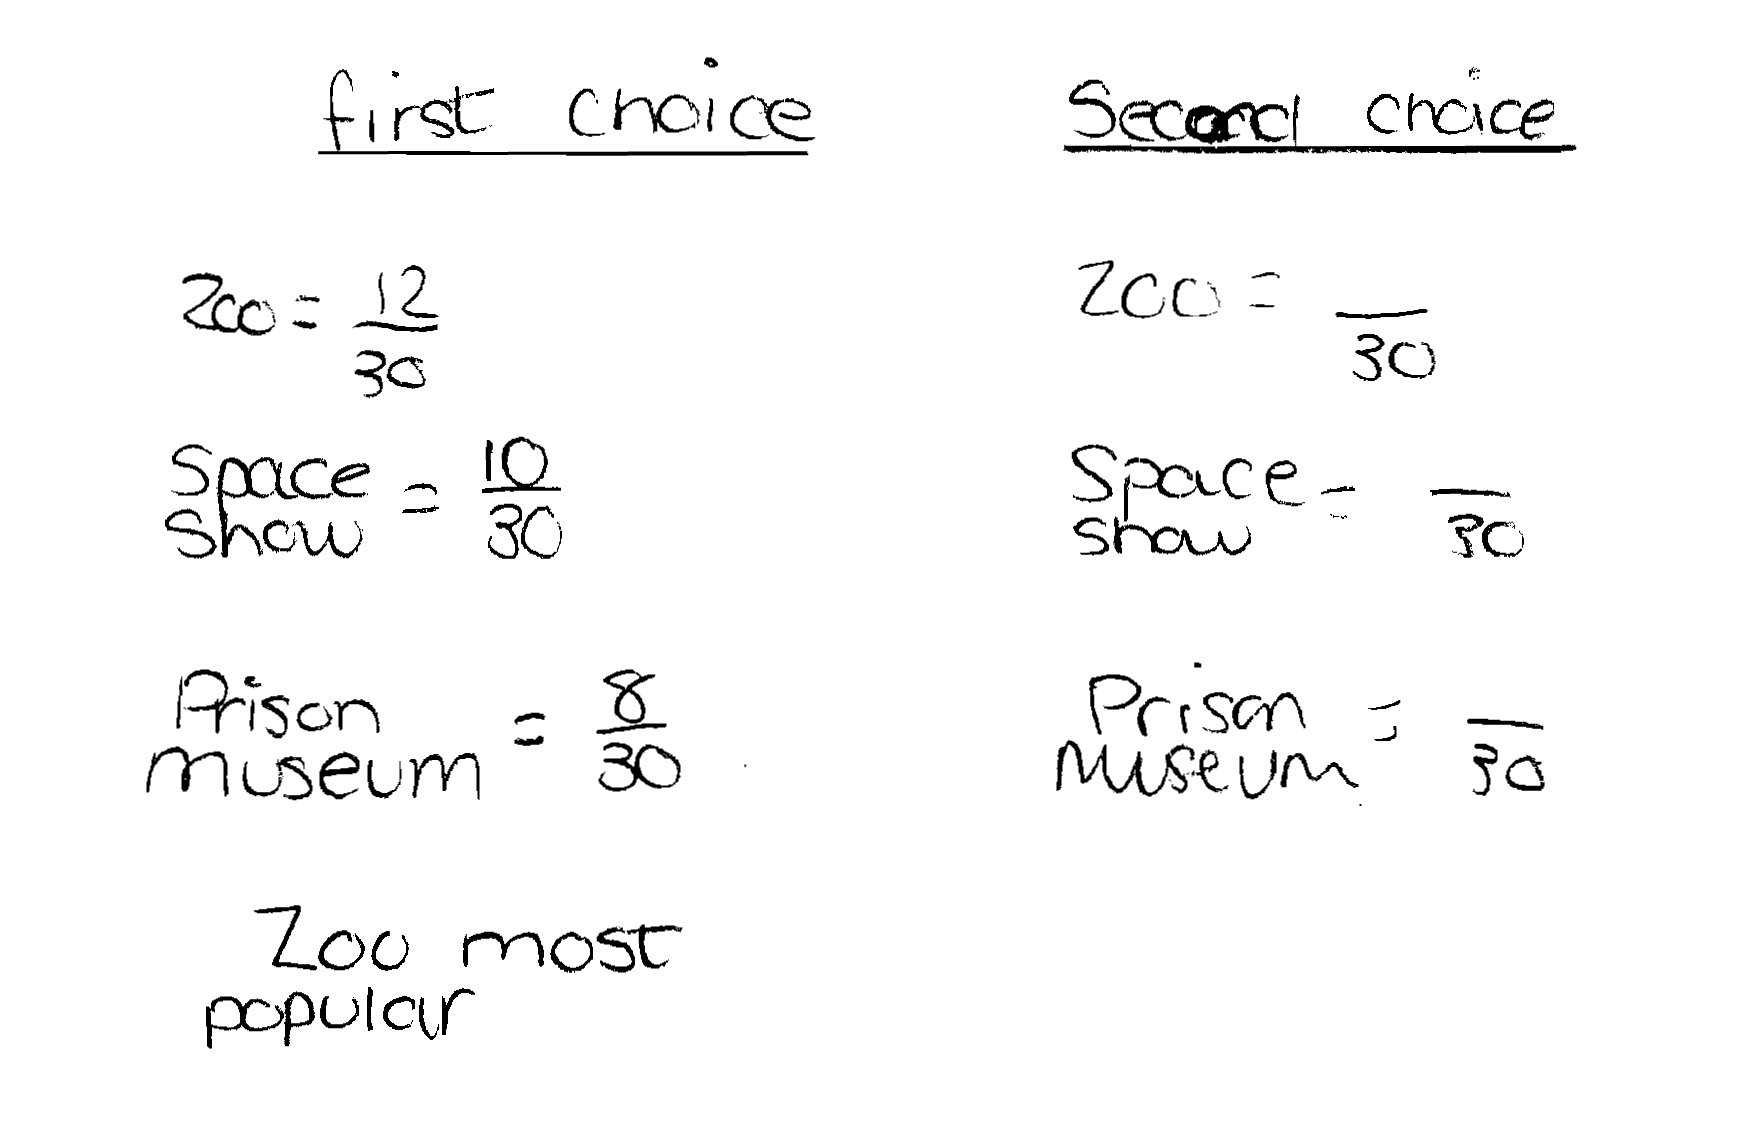 first choice
Zoo = 12/30
Space show = 10/30
Prison museum = 8/30
Zoo most
popular
Second choice
Zoo = /30
Space show = /30
Prison museum = /30